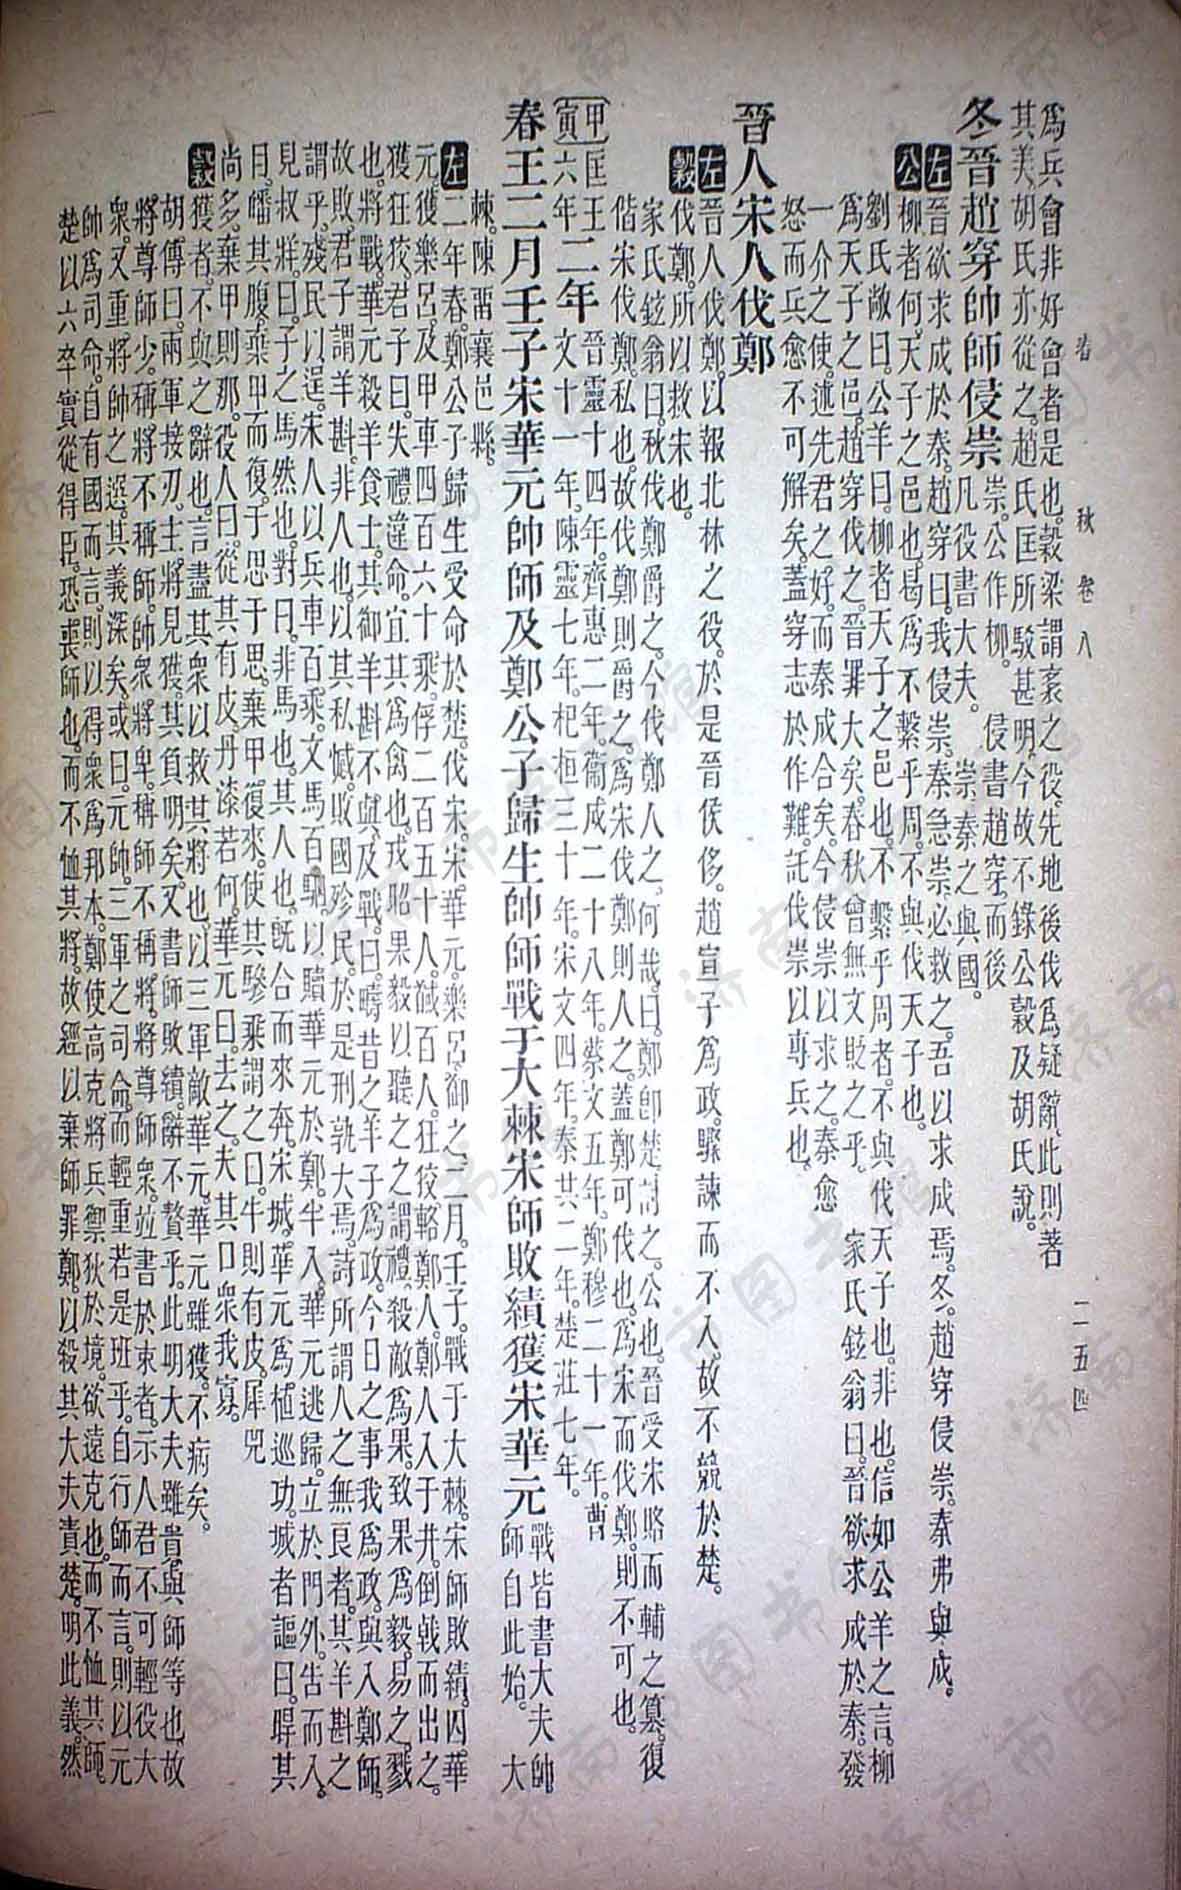 春秋 卷八 二五四
爲兵會非好會者是也。穀梁謂袤之役。先地後伐爲疑辭。此則著
其美。胡氏亦從之。趙氏匡所駁甚明。今故不錄公穀及胡氏說。
冬晉趙穿帥師侵崇 崇。公作柳。 侵書趙穿而後
凡役書大夫。 崇秦之與國。
左 晉欲求成於秦。趙穿曰。我侵崇。秦急崇。必救之。吾以求成焉。冬。趙穿侵崇。秦弗與成。
公 柳者何。天子之邑也。曷爲不繫乎周。不與伐天子也。
劉氏敞曰。公羊曰。柳者天子之邑也。不繫乎周者。不與伐天子也。非也。信如公羊之言。柳
爲天子之邑。趙穿伐之。晉罪大矣。春秋曾無文貶之乎。 家氏鉉翁曰。晉欲求成於秦。發
一介之使。述先君之好。而秦成合矣。今侵崇以求之。秦愈
怒而兵愈不可解矣。蓋穿志於作難。託伐崇以專兵也。
晉人宋人伐鄭
左 晉人伐鄭。以報北林之役。於是晉侯侈。趙宣子爲政。驟諫而不入。故不競於楚。
穀 伐鄭。所以救宋也。
家氏鉉翁曰。秋伐鄭爵之。今伐鄭人之。何哉。曰。鄭卽楚。討之。公也。晉受宋賂而輔之篡。復
偕宋伐鄭。私也。故伐鄭則爵之。爲宋伐鄭則人之。蓋鄭可伐也。爲宋而伐鄭。則不可也。
甲寅 匡王六年 二年 晉靈十四年。齊惠二年。衞成二十八年。蔡文五年。鄭穆二十一年。曹
文十一年。陳靈七年。杞桓三十年。宋文四年。秦共二年。楚莊七年。
春王二月壬子宋華元帥師及鄭公子歸生帥師戰于大棘宋師敗績獲宋華元 戰皆書大夫帥
師自此始。 大
棘。陳畱襄邑縣。
左 二年春。鄭公子歸生受命於楚。伐宋。宋華元。樂呂。御之。二月。壬子。戰于大棘。宋師敗績。囚華
元。獲樂呂。及甲車四百六十乘。俘二百五十人。馘百人。狂狡輅鄭人。鄭人入于井。倒戟而出之。
獲狂狡。君子曰。失禮違命。宜其爲禽也。戎昭果毅以聽之之謂禮。殺敵爲果。致果爲毅。易之。戮
也。將戰。華元殺羊食士。其御羊斟不與。及戰。曰。疇昔之羊子爲政。今日之事我爲政。與入鄭師。
故敗。君子謂羊斟。非人也。以其私憾。敗國殄民。於是刑孰大焉。詩所謂人之無良者。其羊斟之
謂乎。殘民以逞。宋人以兵車百乘。文馬百駟。以贖華元於鄭。半入。華元逃歸。立於門外。告而入。
見叔牂。曰。子之馬然也。對曰。非馬也。其人也。旣合而來奔。宋城。華元爲植巡功。城者謳曰。睅其
目。皤其腹。棄甲而復。于思于思。棄甲復來。使其驂乘謂之曰。牛則有皮。犀兕
尚多。棄甲則那。役人曰。從其有皮。丹漆若何。華元曰。去之。夫其口衆我寡。
穀 獲者。不與之辭也。言盡其衆以救其將也。以三軍敵華元。華元雖獲。不病矣。
胡傳曰。兩軍接刃。主將見獲。其負明矣。又書師敗績。辭不贅乎。此明大夫雖貴。與師等也。故
將尊師少。稱將不稱師。師衆將卑。稱師不稱將。將尊師衆。竝書於柬者。示人君不可輕役大
衆。又重將帥之選。其義深矣。或曰。元帥。三軍之司命。而輕重若是班乎。自行師而言。則以元
帥爲司命。自有國而言。則以得衆爲邦本。鄭使高克將兵禦狄於境。欲遠克也。而不恤其師。
楚以六卒實從得臣。恐喪師也。而不恤其將。故經以棄師罪鄭。以殺其大夫責楚。明此義。然